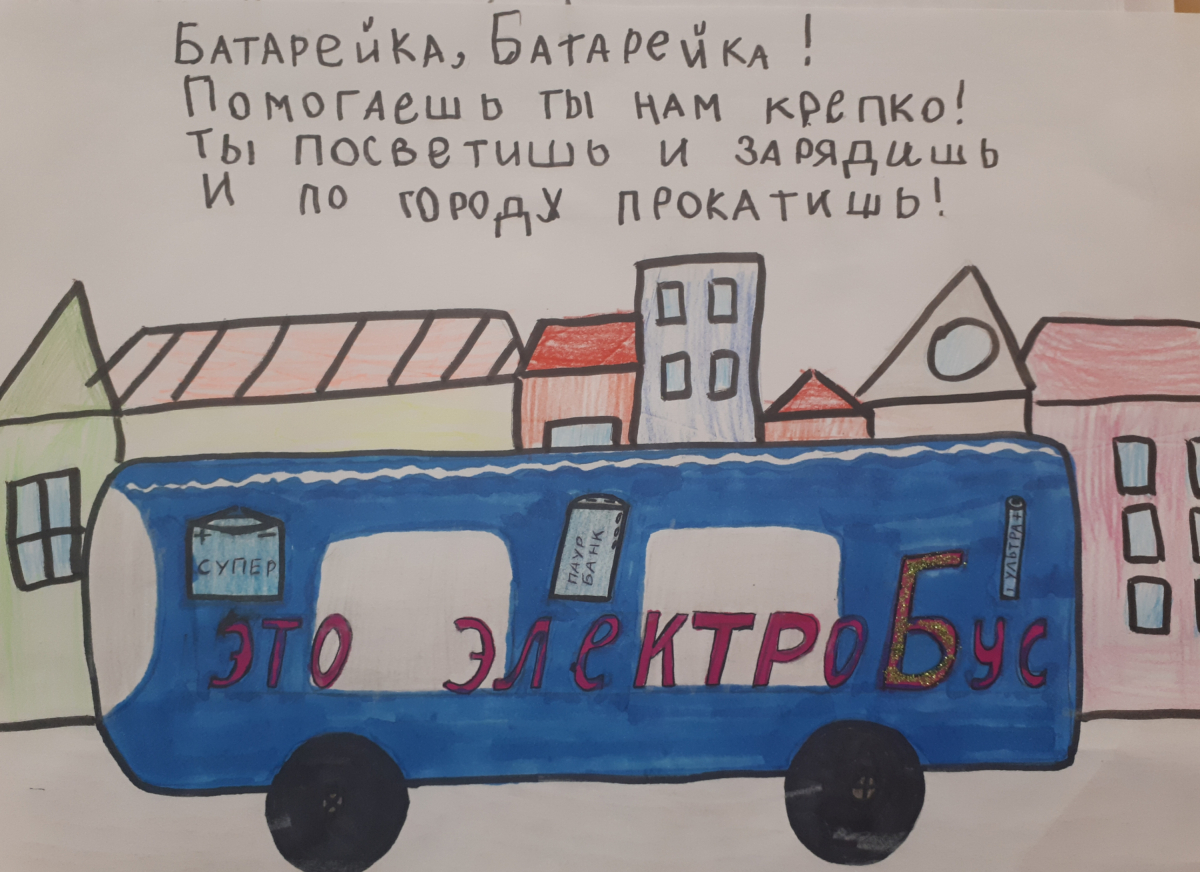 Батарейка, Батарейка!
Помогаешь ты нам крепко!
Ты посветишь и зарядишь
И по городу прокатишь!
+ −
СУПЕР
ПАУР
БАНК
УЛЬТРА+
ЭТО ЭЛЕКТРОБУС